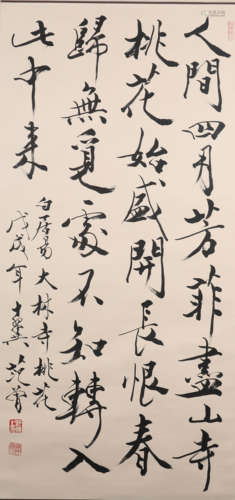 人間四月芳菲盡山寺
桃花始盛開長恨春
歸無覓處不知轉入
此中来
白居易大林寺桃花
戊戌年十翼范曾